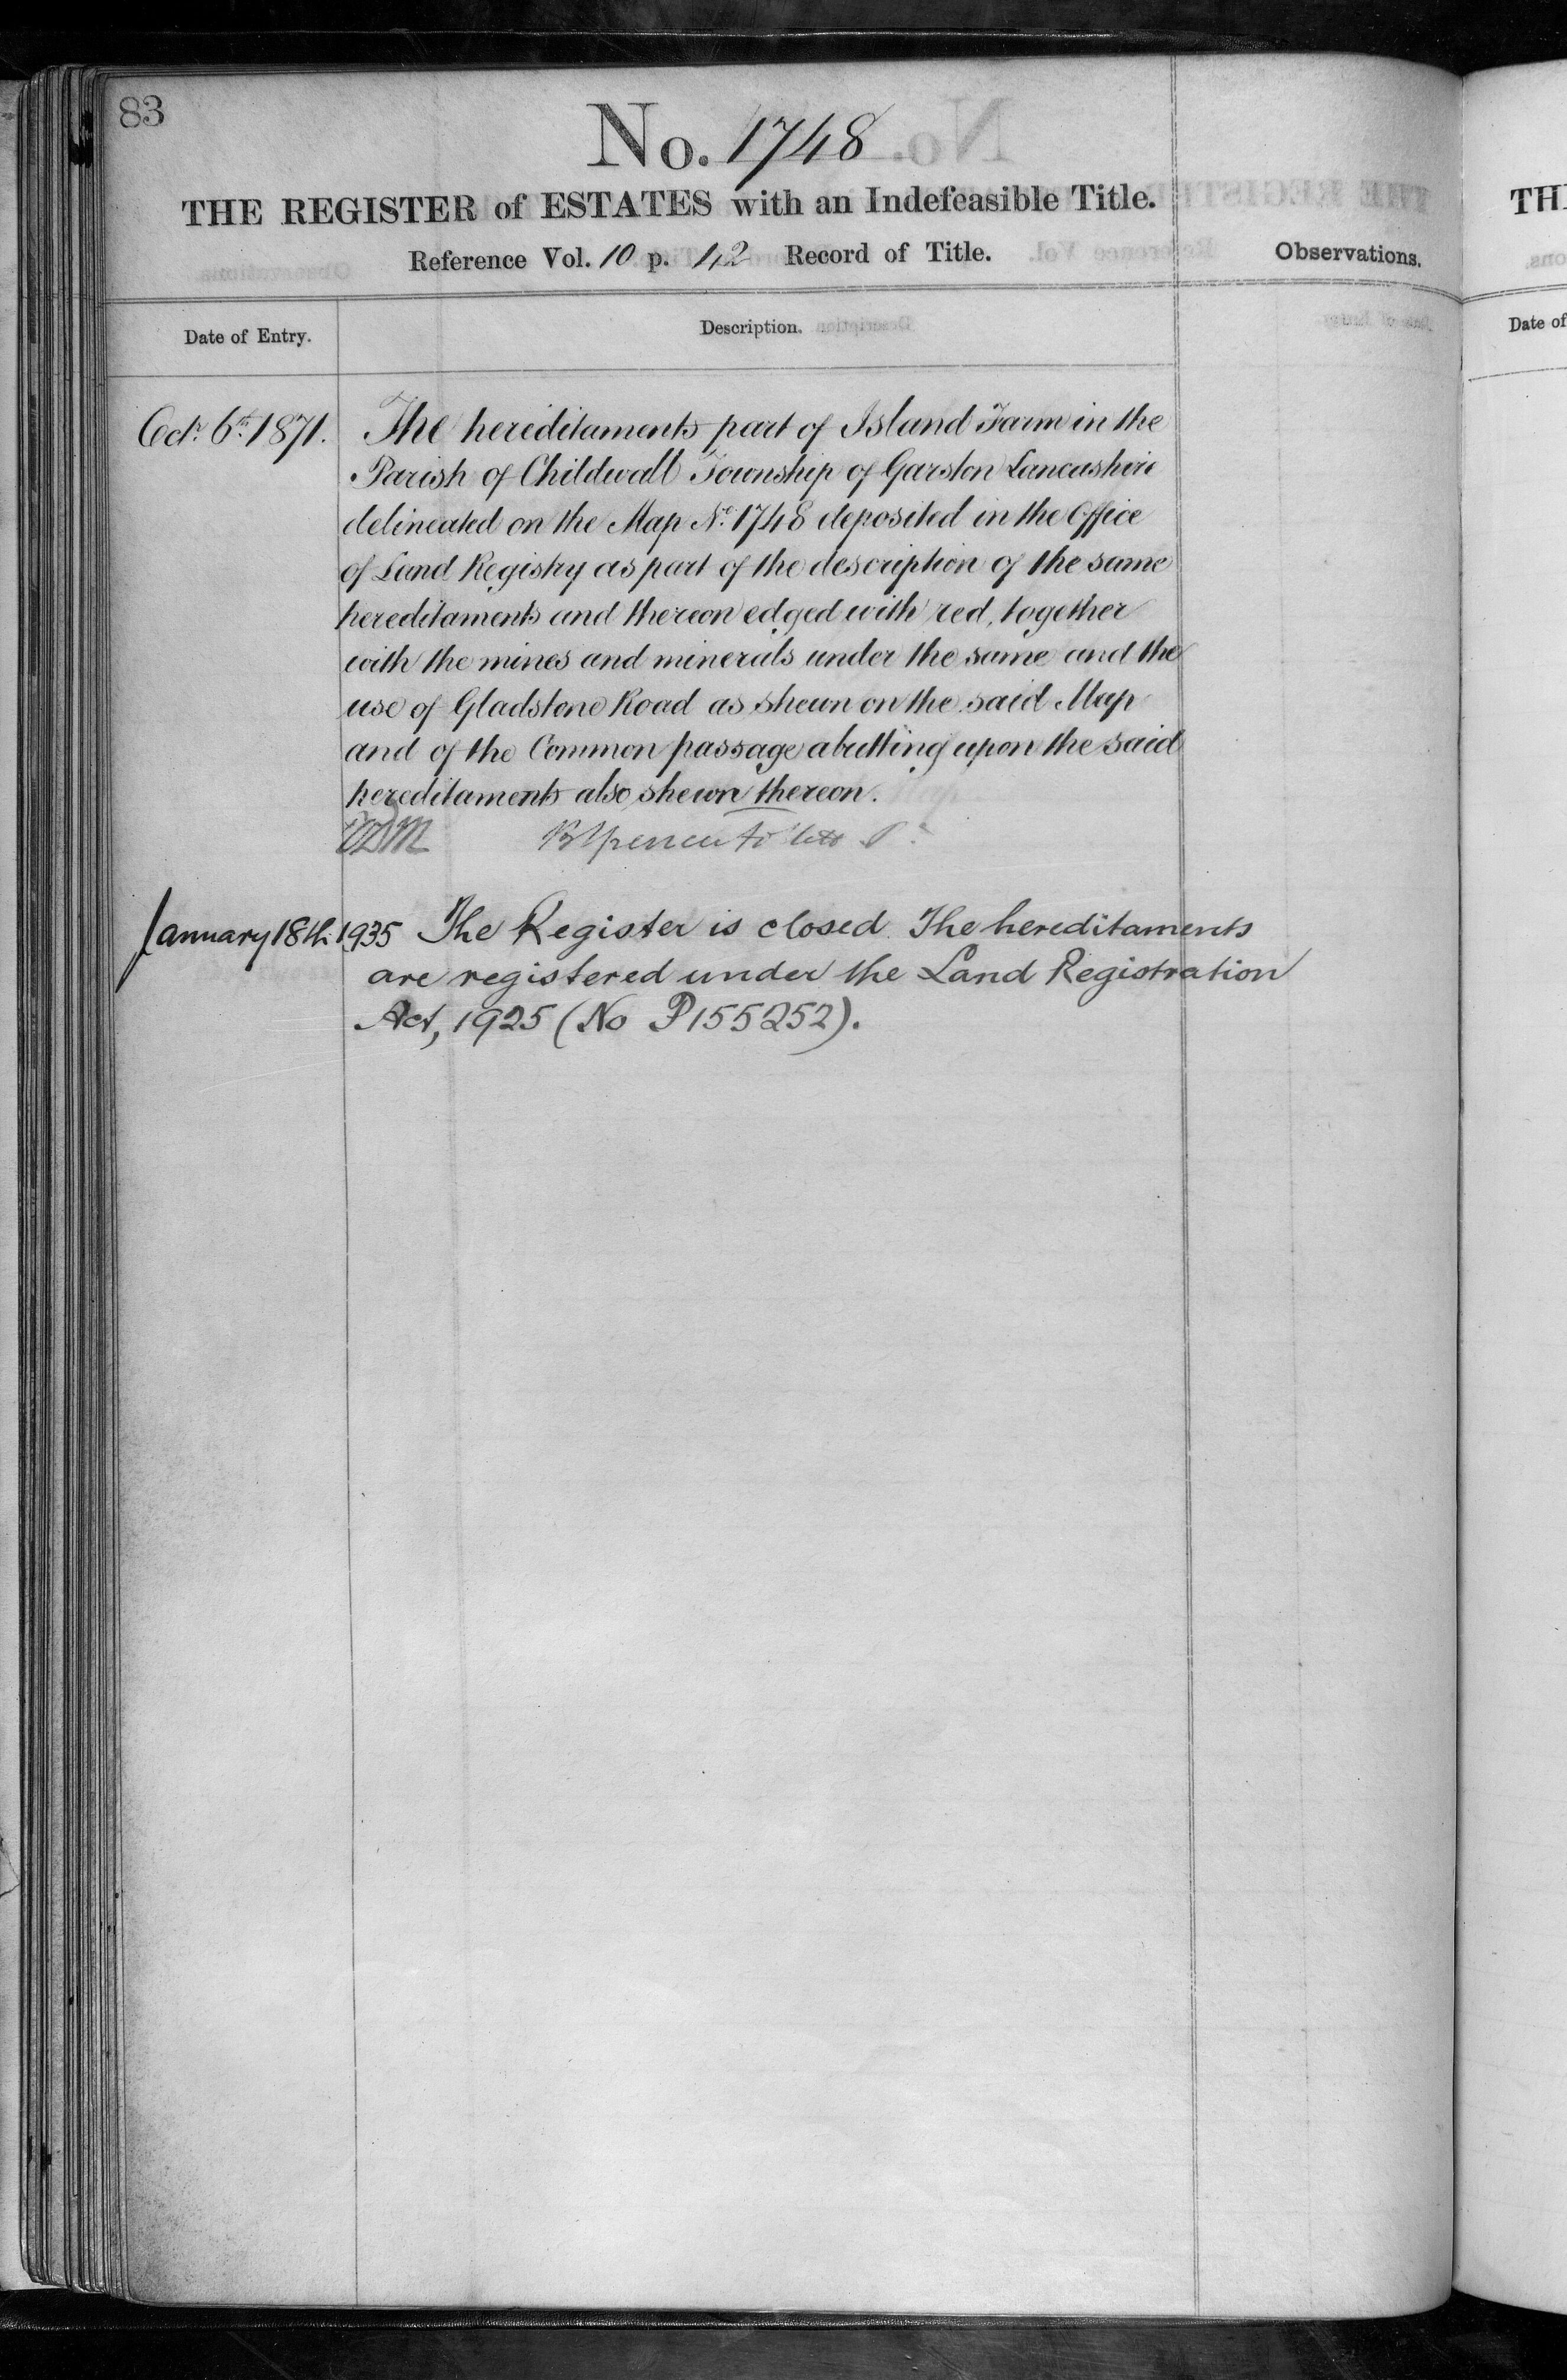 83
No. 1748
THE REGISTER of ESTATES with an Indefeasible Title.
Reference Vol. 10 p. 42 Record of Title.
Observations.
Date of Entry.
Description.
Octr. 6th. 1871.
The hereditaments part of Island Farm in the
Parish of Childwall Township of Garston Lancashire
delineated on the Map No. 1748 deposited in the Office
of Land Registry as part of the description of the same
hereditaments and thereon edged with red, together
with the mines and minerals under the same and the
use of Gladstone Road as shewn on the said Map
and of the Common passage abutting upon the said
hereditaments also shewn thereon.
January 18th 1935 The Register is closed. The hereditaments
are registered under the Land Registration
Act, 1925 (No P155252).
TH
Date of